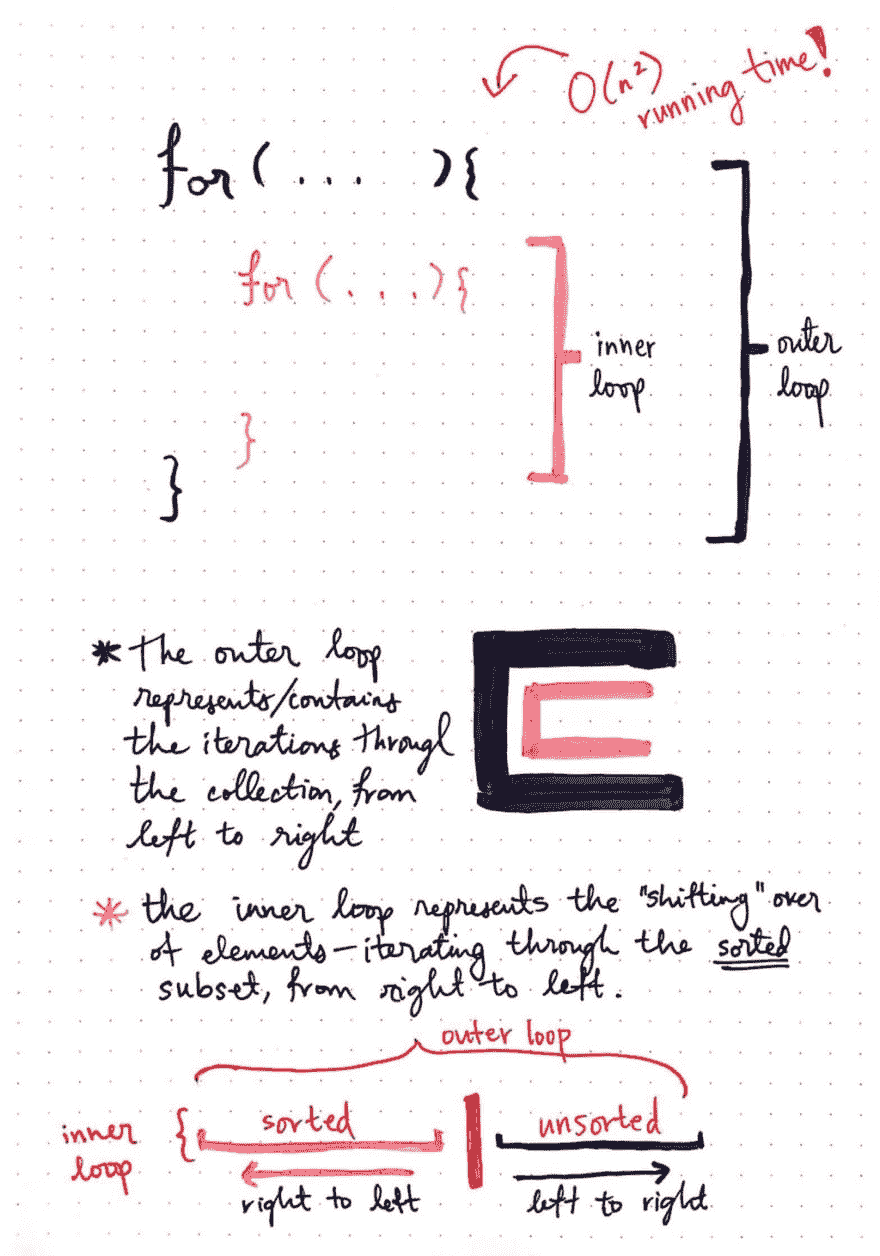 O(n²)
running time!
for( ... ){
for (...){
inner
loop
outer
loop
}
}
* the outer loop
represents/contains
the iterations through
the collection, from
left to right
* the inner loop represents the "shifting" over
of elements — iterating through the sorted
subset, from right to left.
outer loop
inner
loop
{
sorted
unsorted
right to left
left to right